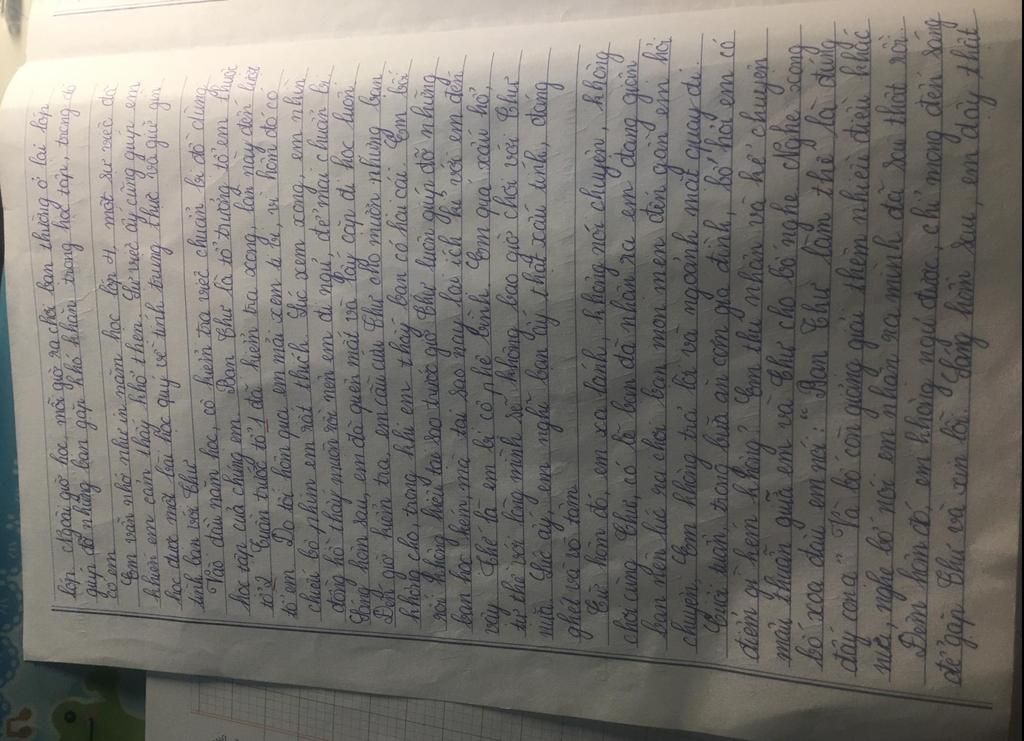 lớp. Ngoài giờ học, mỗi giờ ra chơi bạn thường ở lại lớp
giúp đỡ những bạn gặp khó khăn trong học tập, trong đó
có em.
Em vẫn nhớ như in năm học lớp 4 một sự việc đã
khiến em cảm thấy hổ thẹn. Sự việc ấy cũng giúp em
học được một bài học quý về tính trung thực và giữ gìn
tình bạn với Thư.
Vào đầu năm học, cô kiểm tra việc chuẩn bị đồ dùng
học tập của chúng em. Bạn Thư là tổ trưởng tổ em thuộc
tổ 2. Tuần trước tổ 1 đã kiểm tra xong, lần này đến lượt
tổ em. Do tối hôm qua em mải xem ti vi, vì hôm đó có
chiếu bộ phim em rất thích. Lúc xem xong, em nhìn
đồng hồ thấy muộn rồi nên em đi ngủ, để mai chuẩn bị.
Sáng hôm sau, em đã quên mất và lấy cặp đi học luôn.
Đến giờ kiểm tra, em cầu cứu Thư cho mượn nhưng bạn
không cho, trong khi em thấy bạn có hai cái. Em bối
rối không hiểu tại sao trước giờ Thư luôn giúp đỡ những
bạn học kém, mà tại sao nay lại ích kỉ với em đến
vậy. Thế là em bị cô phê bình. Em quá xấu hổ,
tự thề với lòng mình sẽ không bao giờ chơi với Thư
nữa. Lúc ấy, em nghĩ bạn ấy thật xấu tính, đáng
ghét vô cùng.
Từ hôm đó, em xa lánh, không nói chuyện, không
chơi cùng Thư, có lẽ bạn đã nhận ra em đang giận
bạn nên lúc ra chơi bạn mon men đến gần em hỏi
chuyện. Em không trả lời và ngoảnh mặt quay đi.
Cuối tuần trong bữa ăn cơm gia đình, bố hỏi em có
điểm gì kém không? Em thú nhận và kể chuyện
mâu thuẫn giữa em và Thư cho bố nghe. Nghe xong
bố xoa đầu em nói: "Bạn Thư làm thế là đúng
đấy con ạ". Và bố còn giảng giải thêm nhiều điều khác
nữa, nghe bố nói em nhận ra mình đã sai thật rồi.
Đêm hôm đó, em không ngủ được, chỉ mong đến sáng
để gặp Thư và xin lỗi. Sáng hôm sau, em dậy thật